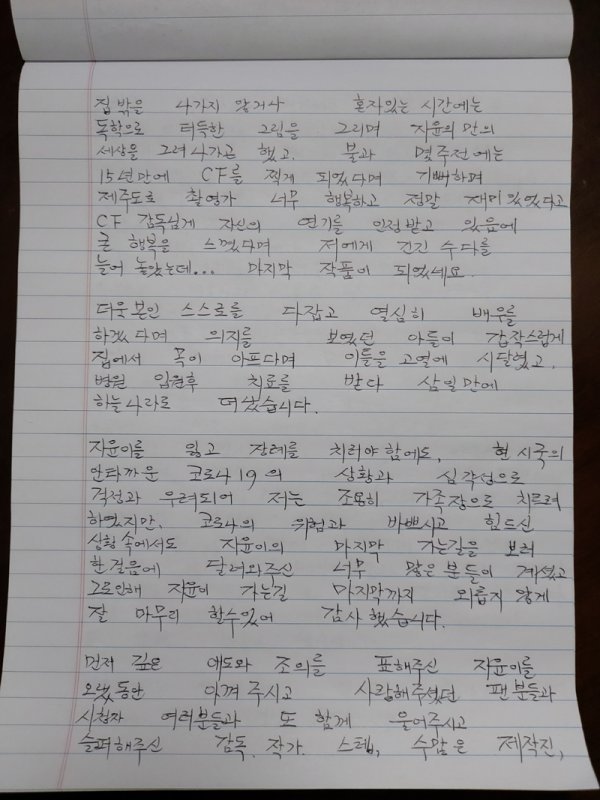 집밖을 나가지 않거나 혼자있는 시간에는
독학으로 터득한 그림을 그리며 자윤의 만의
세상을 그려나가곤 했고. 불과 몇주전에는
15년만에 CF를 찍게 되었다며 기뻐하며
제주도로 촬영가 너무 행복하고 정말 재미있었다고
CF 감독님께 자신의 연기를 인정받고 있음에
큰 행복을 느꼈다며 저에게 긴긴 수다를
늘어 놓았는데... 마지막 작품이 되었네요.
더욱 본인 스스로를 다잡고 열심히 배우를
하겠다며 의지를 보였던 아들이 갑작스럽게
집에서 목이 아프다며 이틀을 고열에 시달렸고,
병원 입원후 치료를 받다 삼일만에
하늘나라로 떠났습니다.
자윤이를 잃고 장례를 치러야함에도, 현 시국의
안타까운 코로나19의 상황과 심각성으로
걱정과 우려되어 저는 조용히 가족장으로 치르려
하였지만, 코로나의 위험과 바쁘시고 힘드신
상황 속에서도 자윤이의 마지막 가는길을 보러
한걸음에 달려와주신 너무 많은 분들이 계셨고
그로인해 자윤이 가는길 마지막까지 외롭지 않게
잘 마무리 할수있어 감사했습니다.
먼저 깊은 애도와 조의를 표해주신 자윤이를
오랬동안 아껴주시고 사랑해주셨던 팬분들과
시청자 여러분들과 또 함께 울어주시고
슬퍼해주신 감독. 작가. 스텝, 수많은 제작진,